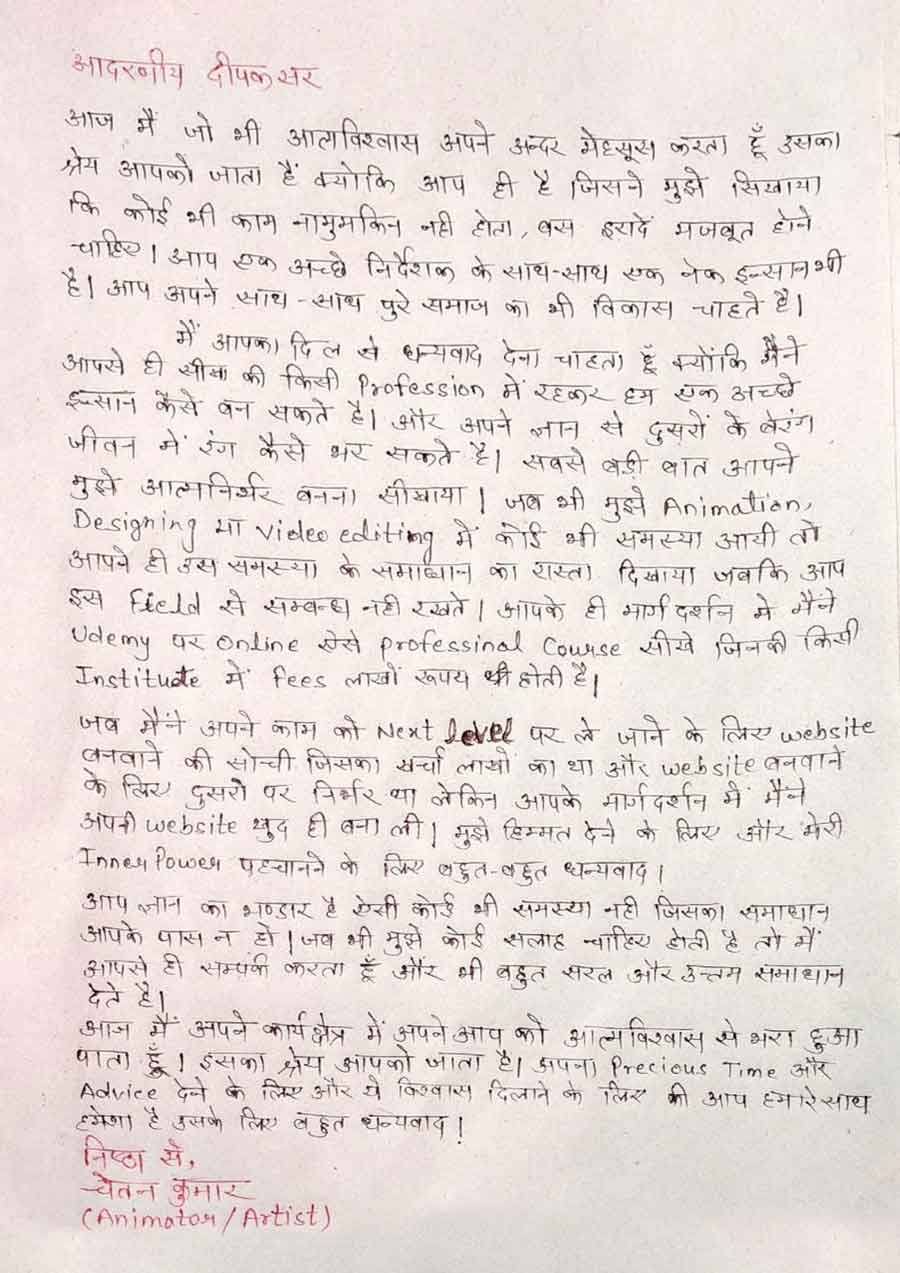 आदरणीय दीपक सर
आज मैं जो भी आत्मविश्वास अपने अन्दर मेहसूस करता हूँ उसका
श्रेय आपको जाता है क्योकि आप ही है जिसने मुझे सिखाया
कि कोई भी काम नामुमकिन नही होता, बस इरादें मजबूत होने
चाहिए। आप एक अच्छे निर्देशक के साथ-साथ एक नेक इन्सान भी
है। आप अपने साथ-साथ पुरे समाज का भी विकास चाहते है।
मैं आपका दिल से धन्यवाद देना चाहता हूँ क्योंकि मैंने
आपसे ही सीखा की किसी Profession में रहकर हम एक अच्छे
इन्सान कैसे बन सकते है। और अपने ज्ञान से दुसरों के बेरंग
जीवन में रंग कैसे भर सकते है। सबसे बड़ी बात आपने
मुझे आत्मनिर्भर बनना सीखाया। जब भी मुझे Animation,
Designing या video editing में कोई भी समस्या आयी तो
आपने ही उस समस्या के समाधान का रास्ता दिखाया जबकि आप
इस Field से सम्बन्ध नही रखते। आपके ही मार्ग दर्शन मे मैंने
Udemy पर Online ऐसे professinal Course सीखे जिनकी किसी
Institute में fees लाखों रूपय होती है।
जब मैंने अपने काम को Next level पर ले जाने के लिए website
बनवाने की सोची जिसका खर्चा लाखों का था और website बनवाने
के लिए दुसरों पर निर्भर था लेकिन आपके मार्गदर्शन में मैंने
अपनी website खुद ही बना ली। मुझे हिम्मत देने के लिए और मेरी
Inner Power पहचानने के लिए बहुत-बहुत धन्यवाद।
आप ज्ञान का भण्डार है ऐसी कोई भी समस्या नही जिसका समाधान
आपके पास न हो। जब भी मुझे कोई सलाह चाहिए होती है तो मैं
आपसे ही सम्पर्क करता हूँ और भी बहुत सरल और उत्तम समाधान
देते है।
आज मैं अपने कार्यक्षेत्र में अपने आप को आत्मविश्वास से भरा हुआ
पाता हूँ। इसका श्रेय आपको जाता है। अपना Precious Time और
Advice देने के लिए और ये विश्वास दिलाने के लिए की आप हमारे साथ
हमेशा है उसके लिए बहुत धन्यवाद।
निष्ठा से,
चेतन कुमार
(Animator/Artist)